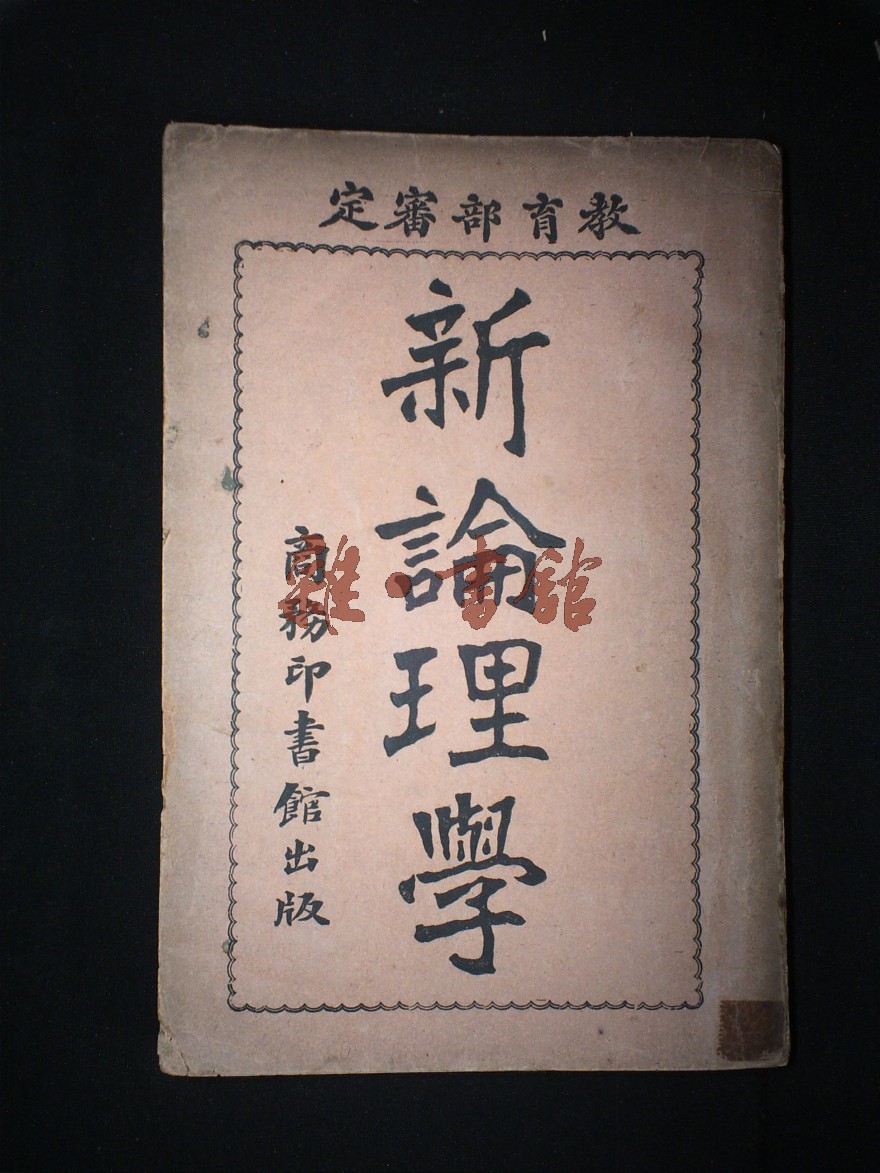 教育部審定
新論理學
商務印書館出版
雜·書館